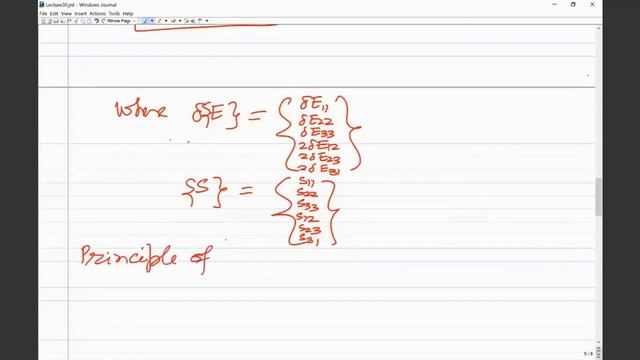 Lecture30.jnt - Windows Journal
File Edit View Insert Actions Tools Help
Whole Page
where δ{E} = { δE11
δE22
δE33
2δE12
2δE23
2δE31 }
{S} = { S11
S22
S33
S12
S23
S31 }
Principle of
5/6